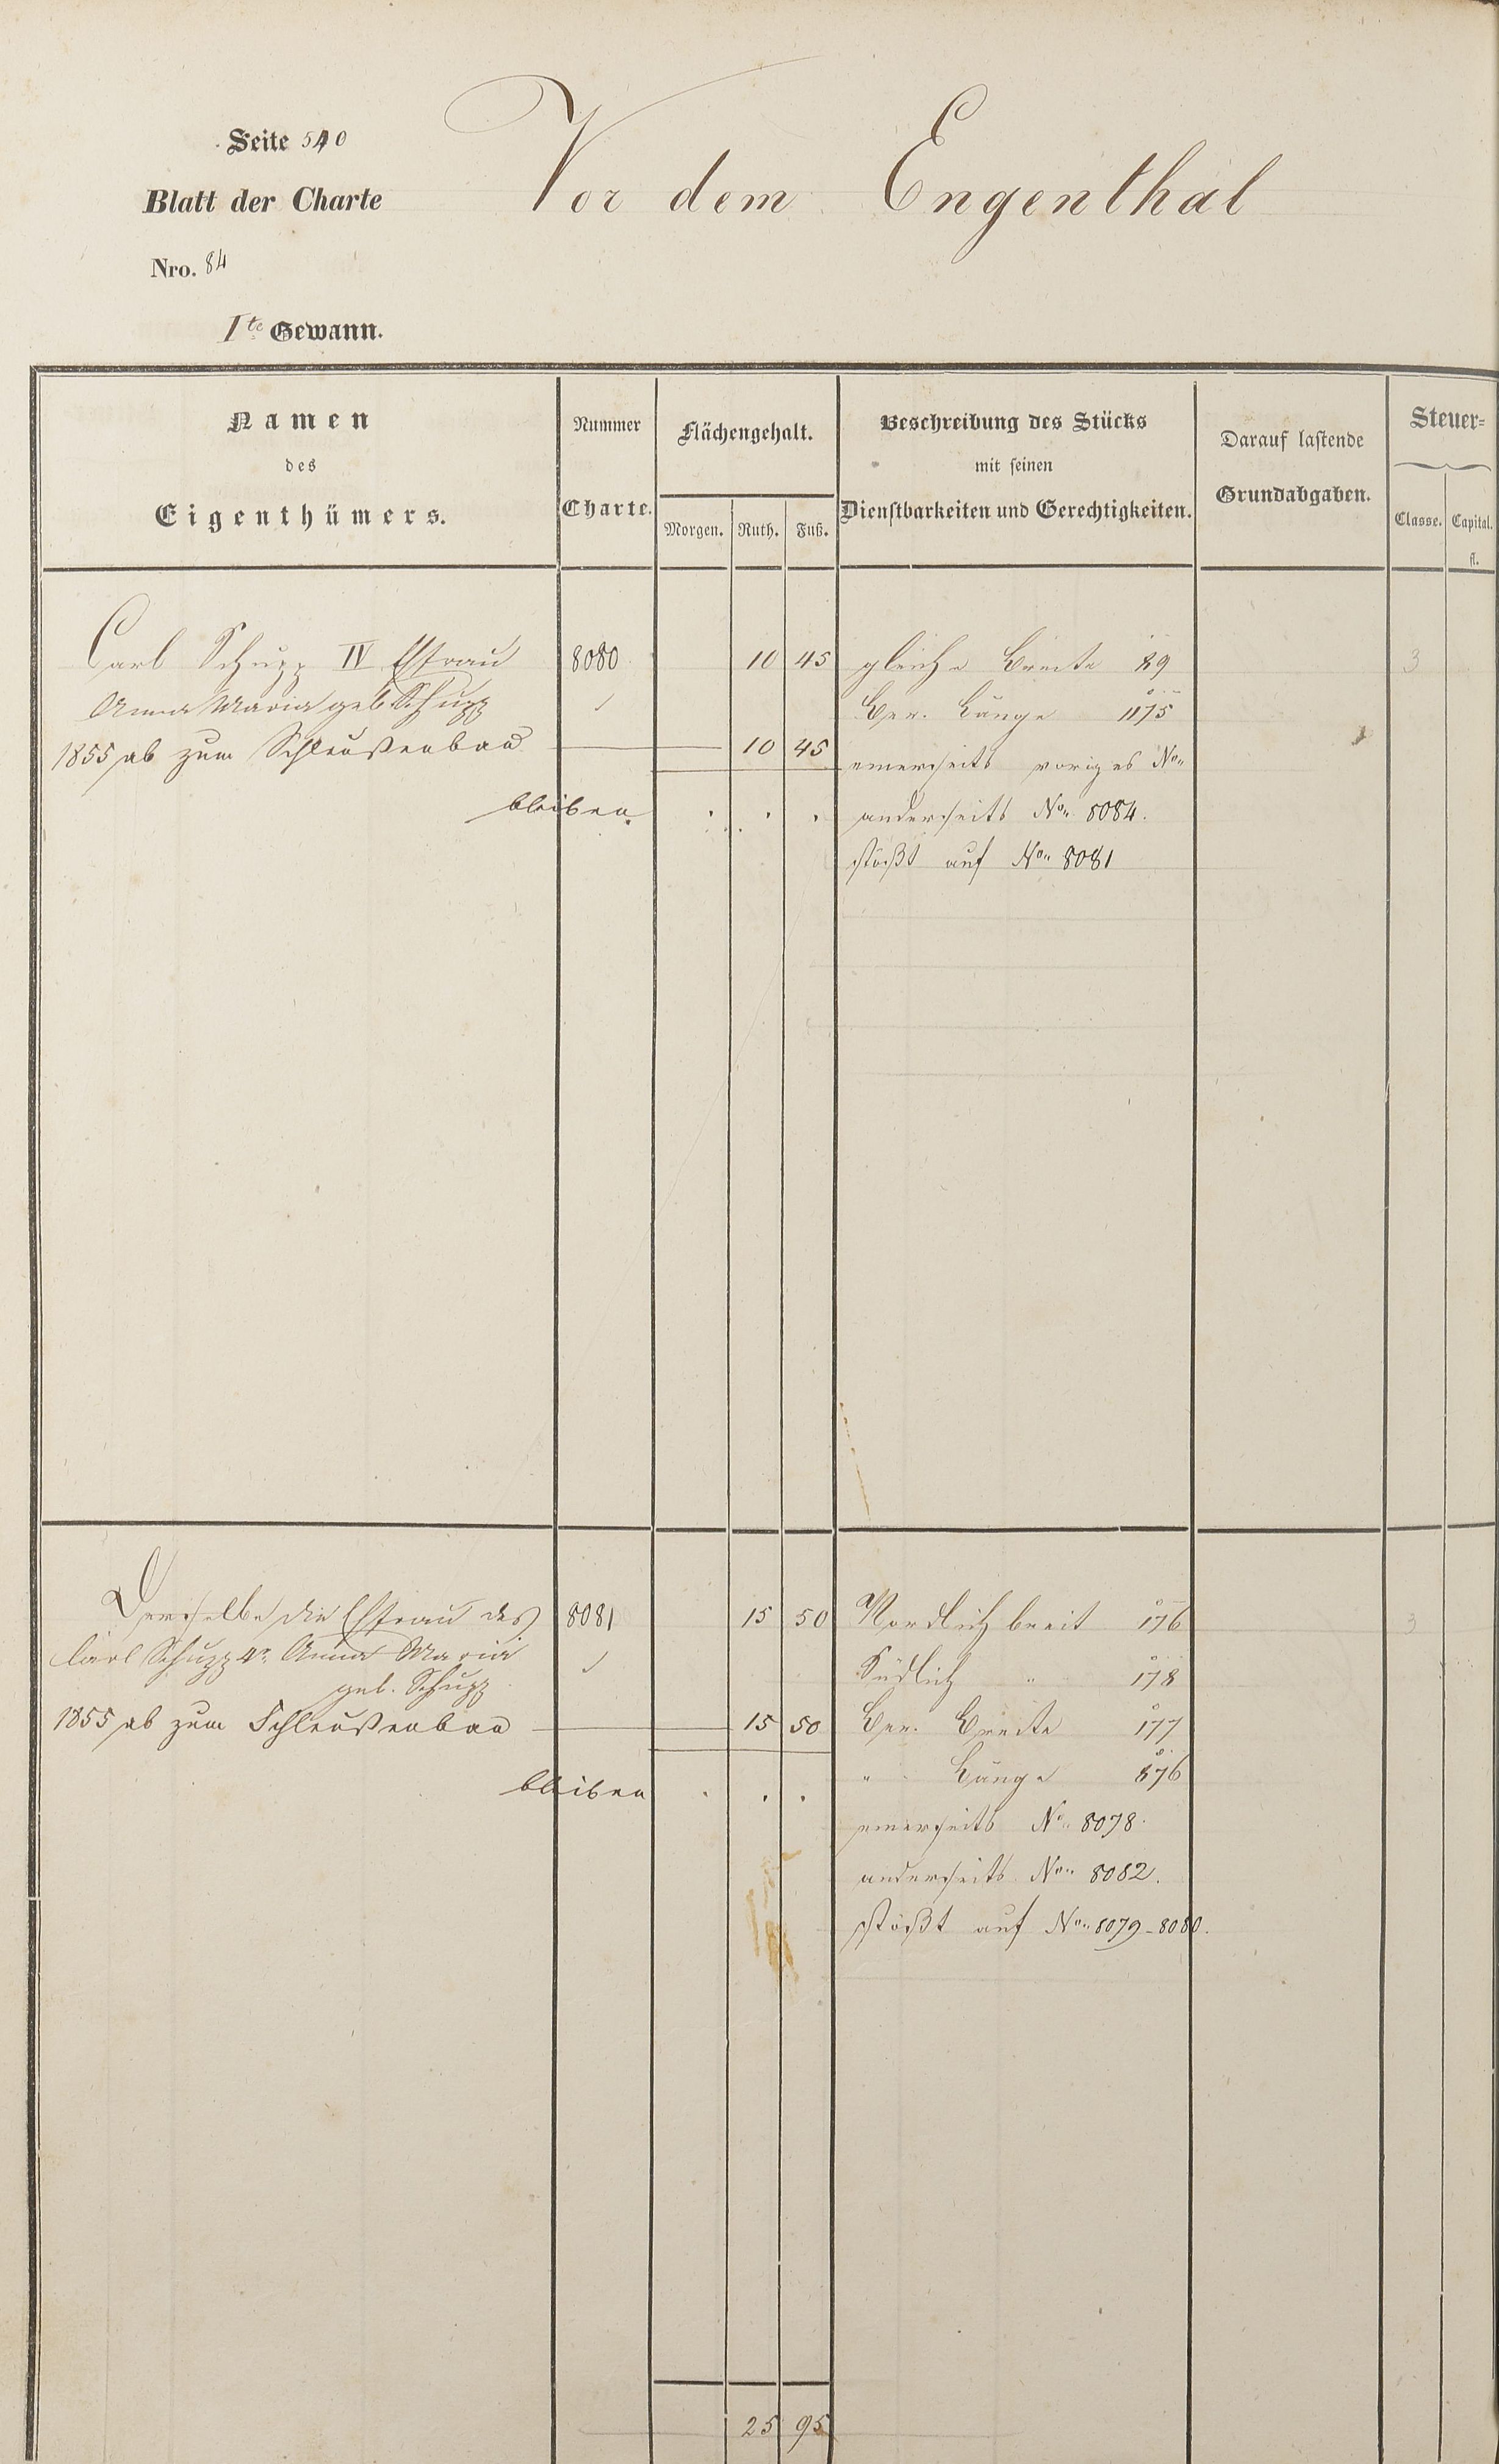 Seite 540
Vor dem Engenthal
Blatt der Charte
Nro. 84
Ite Gewann.
Namen
des
Eigenthümers.
Nummer
Charte.
Flächengehalt.
Morgen. Ruth. Fuß.
Beschreibung des Stücks
mit seinen
Dienstbarkeiten und Gerechtigkeiten.
Darauf lastende
Grundabgaben.
Steuer-
Classe. Capital.
fl.
Carl Schupp IV Ehfrau 8080 10 45 gleiche Breite 89 3
Anna Maria geb Schupp Ber. Länge 1175
1855 ab zum Schleußenbau 10 45 einerseits voriges No.
bleiben . . . anderseits No. 8084.
stößt auf No. 8081
Derselbe die Ehfrau des 8081 15 50 Nordlich breit 176 3
Carl Schupp 4r Anna Maria Südlich " 178
geb. Schupp
1855 ab zum Schleußenbau 15 50 Ber. Breite 177
" Länge 876
bleiben . . .
einerseits No. 8078.
anderseits No. 8082.
stößt auf No. 8079-8080.
25 95